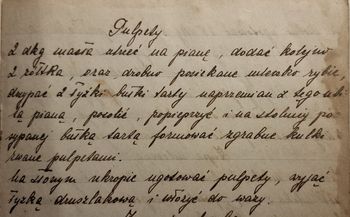 Pulpety
2 dkg masła utrzeć na pianę, dodać kolejno
2 żółtka, oraz drobno posiekane mleczko rybie,
wsypać 2 łyżki bułki tartej naprzemian z sego ubi
tą pianą, posolić, popieprzyć i na stolnicy po
sypanej bułką tartą formować zgrabne kulki
zwane pulpetami.
Na słonym ukropie ugotować pulpety, wyjąć
łyżką durszlakową i włożyć do wazy.